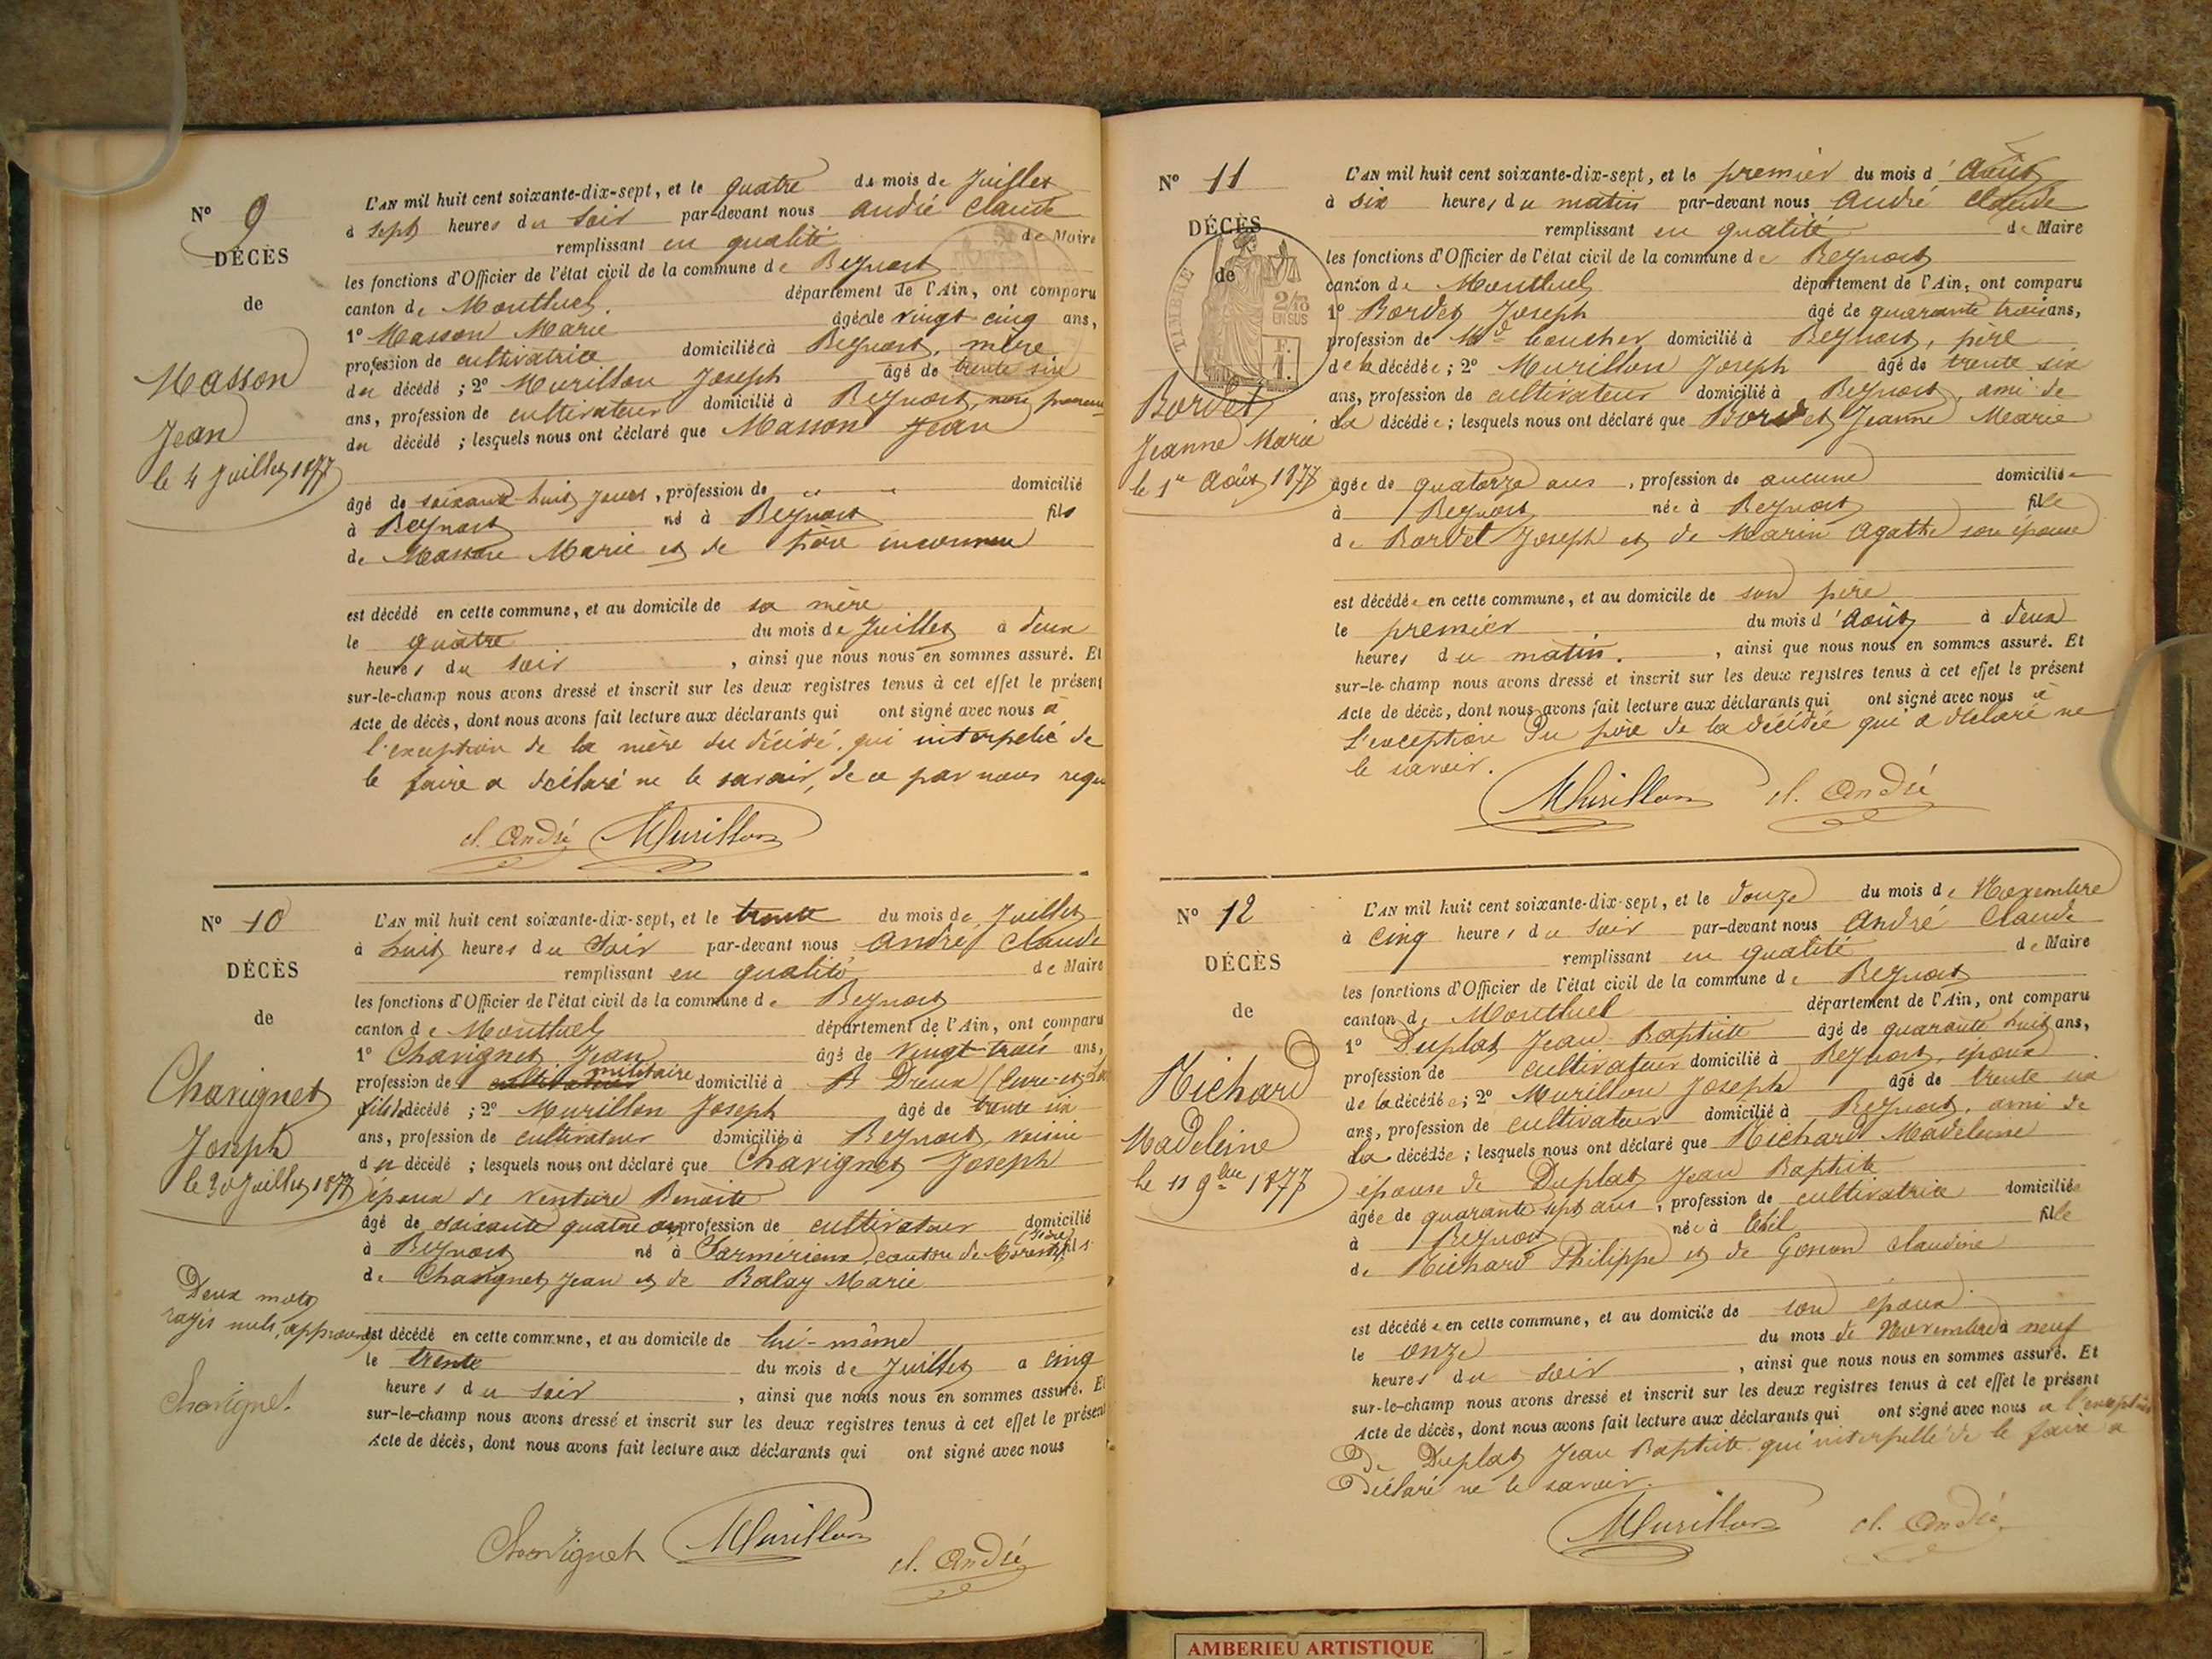 N° 9
DÉCÈS
de
Masson
Jean
le 4 Juillet 1877
L'AN mil huit cent soixante-dix-sept, et le quatre du mois de Juillet
à sept heures du soir par-devant nous André Claude
remplissant en qualité de Maire
les fonctions d'Officier de l'état civil de la commune de Beynost
canton de Montluel département de l'Ain, ont comparu
1° Masson Marie âgée de vingt cinq ans,
profession de cultivatrice domiciliée à Beynost, mère
du décédé ; 2° Murillon Joseph âgé de trente six
ans, profession de cultivateur domicilié à Beynost, non
du décédé ; lesquels nous ont déclaré que Masson Jean
âgé de soixante huit jours, profession de " " domicilié
à Beynost né à Beynost fils
de Masson Marie et de père inconnu
est décédé en cette commune, et au domicile de sa mère
le quatre du mois de Juillet à deux
heures du soir, ainsi que nous nous en sommes assuré. Et
sur-le-champ nous avons dressé et inscrit sur les deux registres tenus à cet effet le présent
Acte de décès, dont nous avons fait lecture aux déclarants qui ont signé avec nous à
l'exception de la mère du décédé, qui interpelé de
le faire a déclaré ne le savoir, de ce par nous requ
cl. André Murillon
N° 10
DÉCÈS
de
Chavignet
Joseph
le 30 Juillet 1877
Deux mots
rayés nuls, approuvés
Chavignet
L'AN mil huit cent soixante-dix-sept, et le trente du mois de Juillet
à huit heures du Soir par-devant nous André Claude
remplissant en qualité de Maire
les fonctions d'Officier de l'état civil de la commune de Beynost
canton de Montluel département de l'Ain, ont comparu
1° Chavignet Jean âgé de vingt-trois ans,
profession de cultivateur militaire domicilié à Dreux (Eure-et-
fils du décédé ; 2° Murillon Joseph âgé de trente six
ans, profession de cultivateur domicilié à Beynost, voisin
du décédé ; lesquels nous ont déclaré que Chavignet Joseph
époux de Venture Benoite
âgé de soixante quatre ans profession de cultivateur domicilié
à Beynost né à Sarmérieux, canton de Morestel (Isère) fils
de Chavignet Jean et de Balay Marie
est décédé en cette commune, et au domicile de lui-même
le trente du mois de Juillet à cinq
heures du soir, ainsi que nous nous en sommes assuré. Et
sur-le-champ nous avons dressé et inscrit sur les deux registres tenus à cet effet le présent
Acte de décès, dont nous avons fait lecture aux déclarants qui ont signé avec nous
Chavignet Murillon
cl. André
N° 11
DÉCÈS
de
TIMBRE
2/10
EN SUS
F.
1.
Bordet
Jeanne Marie
le 1er Août 1877
L'AN mil huit cent soixante-dix-sept, et le premier du mois d'Août
à six heures du matin par-devant nous André Claude
remplissant en qualité de Maire
les fonctions d'Officier de l'état civil de la commune de Beynost
canton de Montluel département de l'Ain, ont comparu
1° Bordet Joseph âgé de quarante trois ans,
profession de Md boucher domicilié à Beynost, père
de la décédée ; 2° Murillon Joseph âgé de trente six
ans, profession de cultivateur domicilié à Beynost, ami de
la décédée ; lesquels nous ont déclaré que Bordet Jeanne Marie
âgée de quatorze ans, profession de aucune domiciliée
à Beynost née à Beynost fille
de Bordet Joseph et de Marin Agathe son épouse
est décédée en cette commune, et au domicile de son père
le premier du mois d'Août à deux
heures du matin., ainsi que nous nous en sommes assuré. Et
sur-le-champ nous avons dressé et inscrit sur les deux registres tenus à cet effet le présent
Acte de décès, dont nous avons fait lecture aux déclarants qui ont signé avec nous à
l'exception du père de la décédée qui a déclaré ne
le savoir.
Murillon cl. André
N° 12
DÉCÈS
de
Michard
Madeleine
le 11 9bre 1877
L'AN mil huit cent soixante-dix-sept, et le douze du mois de Novembre
à cinq heures du soir par-devant nous André Claude
remplissant en qualité de Maire
les fonctions d'Officier de l'état civil de la commune de Beynost
canton de Montluel département de l'Ain, ont comparu
1° Duplat Jean Baptiste âgé de quarante huit ans,
profession de cultivateur domicilié à Beynost, époux
de la décédée ; 2° Murillon Joseph âgé de trente six
ans, profession de cultivateur domicilié à Beynost, ami de
la décédée ; lesquels nous ont déclaré que Michard Madeleine
épouse de Duplat Jean Baptiste
âgée de quarante sept ans, profession de cultivatrice domiciliée
à Beynost née à fille
de Michard Philippe et de Gonon Claudine
est décédée en cette commune, et au domicile de son époux
le onze du mois de Novembre à neuf
heures du soir, ainsi que nous nous en sommes assuré. Et
sur-le-champ nous avons dressé et inscrit sur les deux registres tenus à cet effet le présent
Acte de décès, dont nous avons fait lecture aux déclarants qui ont signé avec nous à l'exception
De Duplat Jean Baptiste qui interpellé de le faire a
Déclaré ne le savoir.
Murillon cl. André
AMBERIEU ARTISTIQUE